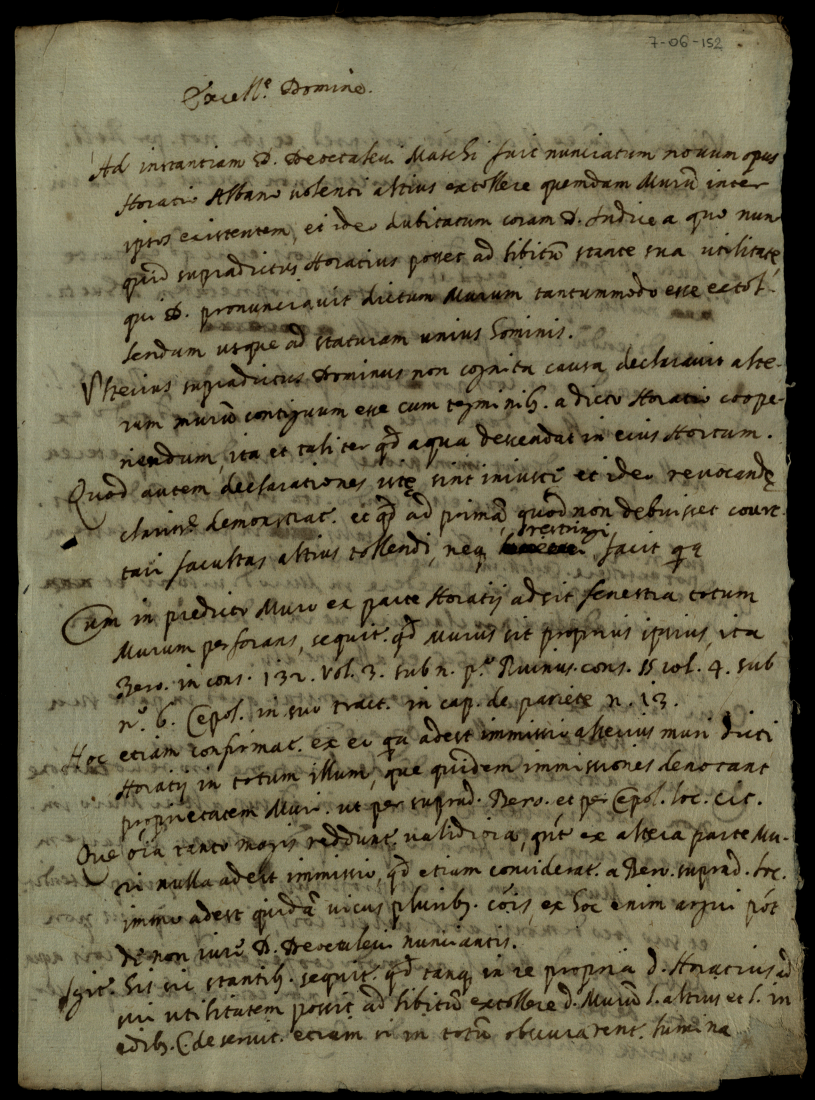 7-06-152
Excell.e Domine.
Ad instantiam D. Deoctalevi Maschi fuit nunciatum novum opus
Horatio Albano volenti altius extollere quemdam Murũ inter
ipsos existentem, et ideo dubitatum coram D. Iudice a quo nun
quid supradictus Horatius posset ad libitũ stante sua utilitate
qui D. pronunciavit dictum Murum tantummodo esse extol-
lendum usque ad staturam unius hominis.
Ulterius supradictus Dominus non cognita causa declaravit alte-
rum murũ contiguum esse cum tegminib. a dicto Horatio coope-
riendum, ita et taliter qd aqua descendat in eius Hortum.
Quod autem declarationes istę sint iniustę et ideo revocandę
clariss.e demonstrat. et qd ad primã quod non debuisset coarc-
tari facultas altius tollendi, neq restringi, facit qa
Cum in predicto Muro ex parte Horatij adsit fenestra totum
Murum perforans, sequit. qd Murus sit proprius ipsius, ita
Bero. in cons. 132. vol. 3. sub n. p.o Ruinus. cons. 15 vol. 4. sub
n.o 6. Cepol. in suo tract. in cap. de pariete n. 13.
Hoc etiam confirmat. ex eo qa adest immissio alterius muri dicti
Horatij in totum illum, que quidem immissiones denotant
proprietatem Muri. ut per suprad. Bero. et per Cepol. loc. cit.
Que oĩa tanto magis reddunt. validiora, qñt ex altera parte Mu-
ri nulla adest immissio, qd etiam considerat. a Bero. suprad. loc.
immo adest quidã vicus plurib. cõis, ex hoc enim argui põt
de non iure D. Deoctalevi nunciantis.
Igit. his sic stantib. sequit. qd tanq in re propria d. Horatius ad
sui utilitatem possit ad libitũ extollere d. Murũ l. altius et l. in
edib. C. de servit. etiam si in totũ obscurarent. lumina